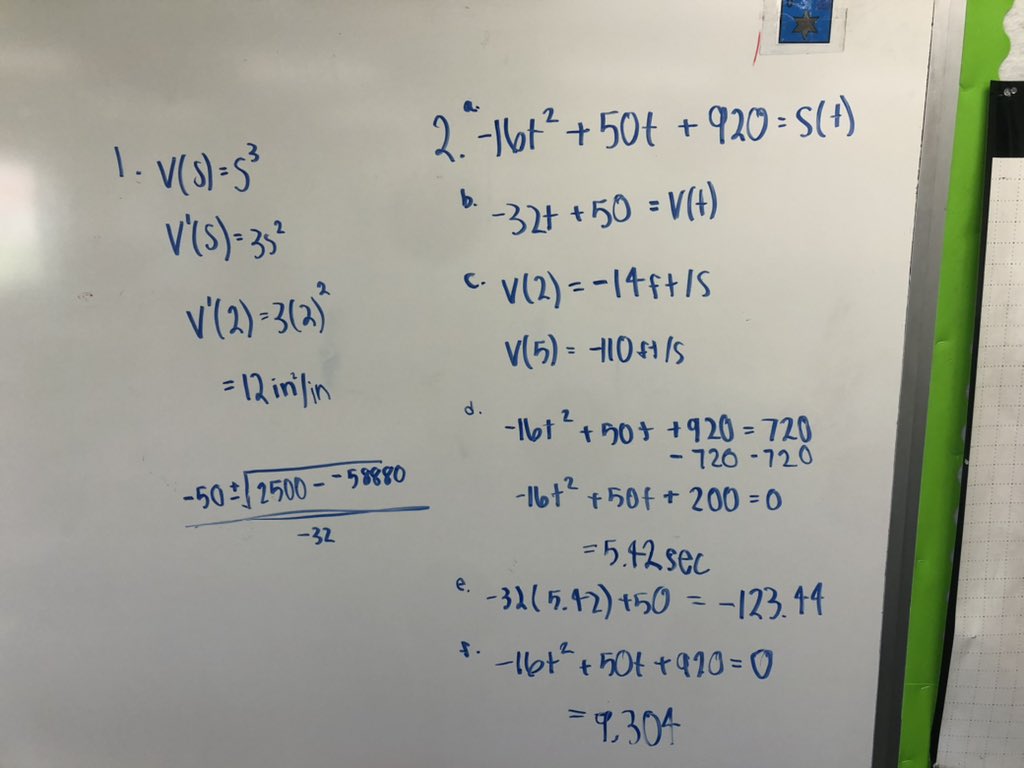 1. V(s)=s³
V'(s)=3s²
V'(2)=3(2)²
=12 in³/in
-50±√2500--58880
-32
2. a. -16t²+50t+920=s(t)
b. -32t+50=V(t)
c. V(2)=-14ft/s
V(5)=-110ft/s
d. -16t²+50t+920=720
-720 -720
-16t²+50t+200=0
=5.42sec
e. -32(5.42)+50=-123.44
f. -16t²+50t+920=0
=9.304